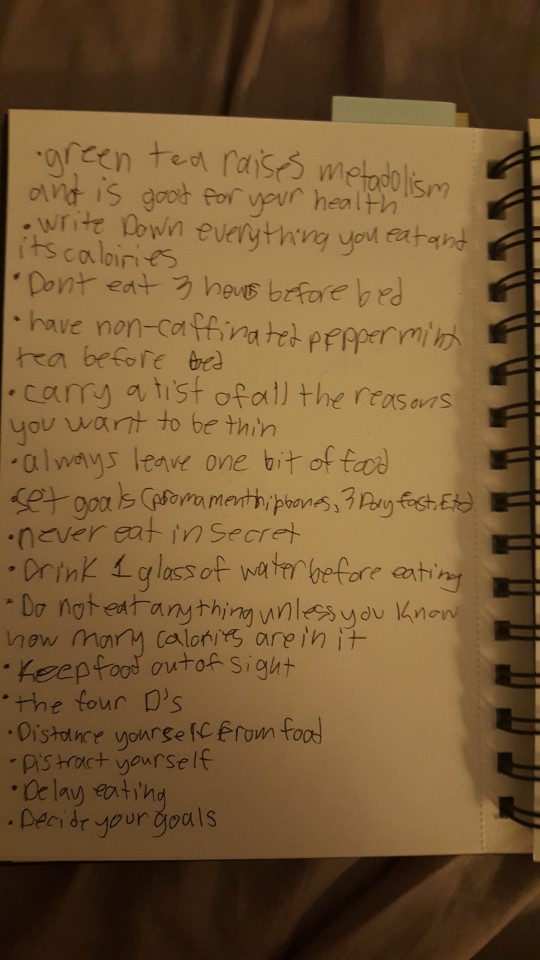 ·green tea raises metabolism
and is good for your health
·write Down everything you eat and
its caloiries
·Dont eat 3 hours before bed
·have non-caffinated peppermint
tea before bed
·carry a list of all the reasons
you want to be thin
·always leave one bit of food
·set goals ( hipbones, 3 Day fast, Etc)
·never eat in secret
·Drink 1 glass of water before eating
·Do not eat anything unless you know
how many calories are in it
·Keep food out of sight
·the four D's
·Distance yourself From food
·Distract yourself
·Delay eating
·Decide your goals